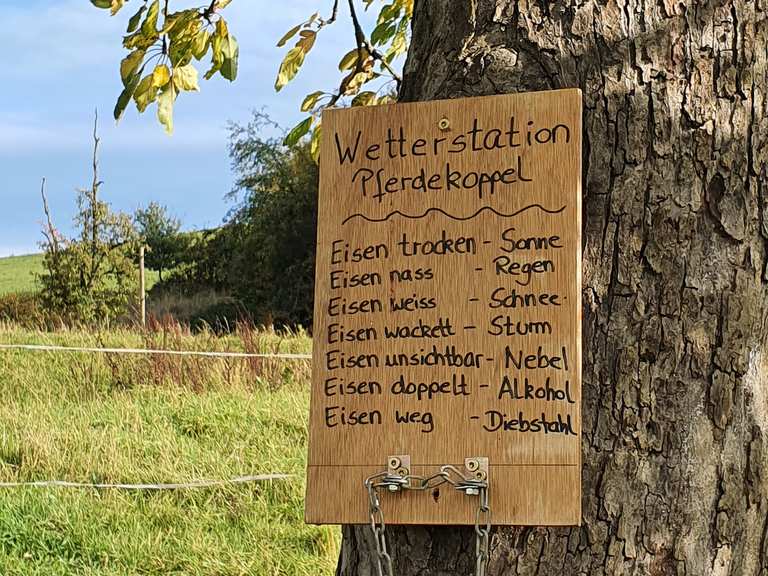 Wetterstation
Pferdekoppel
Eisen trocken - Sonne
Eisen nass - Regen
Eisen weiss - Schnee
Eisen wackelt - Sturm
Eisen unsichtbar - Nebel
Eisen doppelt - Alkohol
Eisen weg - Diebstahl